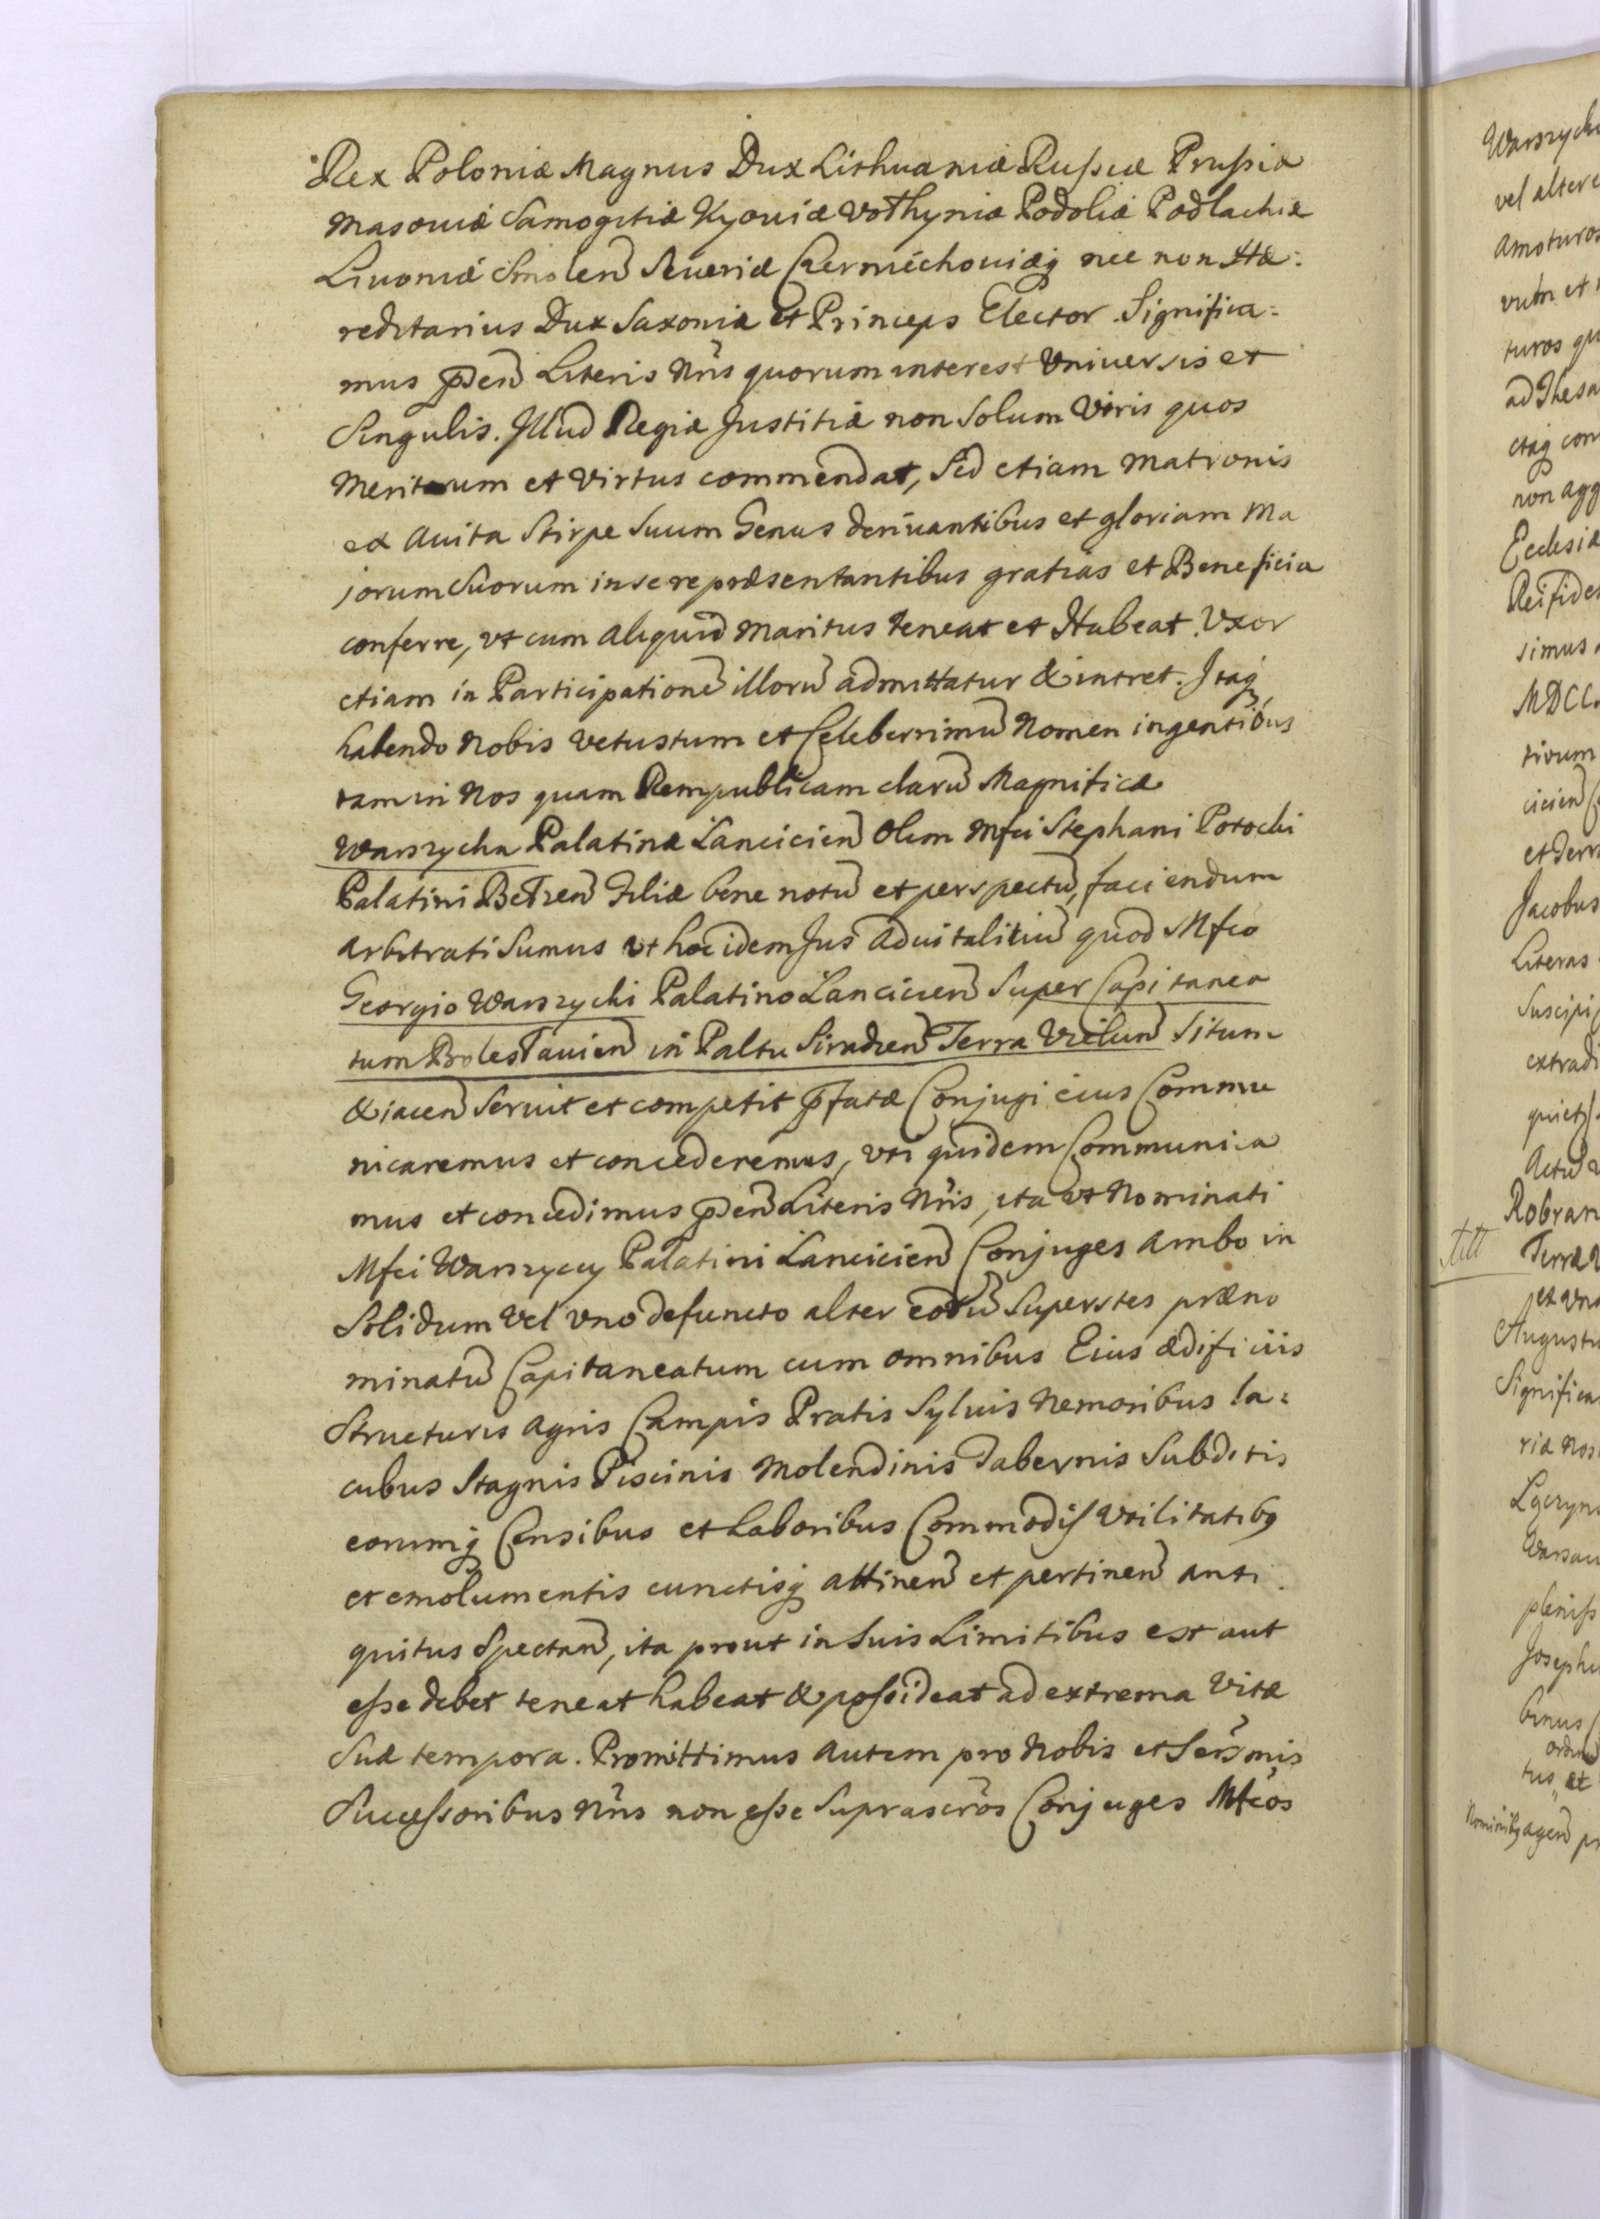 Rex Poloniæ Magnus Dux Lithuaniæ Russiæ Prussiæ
Masoviæ Samogitiæ Kyoviæ Volhyniæ Podoliæ Podlachiæ
Livoniæ Smolen Severiæ Czerniechoviæq nec non Hæ:
reditarius Dux Saxoniæ et Princeps Elector. Significa:
mus pñen Literis Nris quorum interest Universis et
Singulis. Illud Regiæ Justitiæ non solum Viris quos
Meritorum et Virtus commendat, sed etiam Matronis
ex Avita Stirpe suum Genus derivantibus et gloriam Ma
jorum Suorum in se repræsentantibus gratias et Beneficia
conferre, vt cum aliquid Maritus teneat et Habeat. Vxor
etiam in Participationē illorū admittatur & intret. Itaq
habendo Nobis vetustum et Celeberrimū Nomen ingentibus
tam in Nos quam Rempublicam clarū Magnificæ
Warszycka Palatinæ Lancicien Olim Mfci Stephani Potocki
Palatini Belzen Filiæ bene notū et perspectū, faciendum
arbitrati Sumus vt hoc idem Jus advitalitiū quod Mfco
Georgio Warszycki Palatino Lancicien Super Capitanea
tum Boleslavien in Paltu Siradien Terra Vielun Situm
& iacen servit et competit pfatæ Conjugi eius Commu
nicaremus et concederemus, vti quidem Communica
mus et concedimus pñen Literis Nris, ita vt Nominati
Mfci Warszyccy Palatini Lancicien Conjuges ambo in
Solidum vel vno defuncto alter eorū Superstes præno
minatū Capitaneatum cum omnibus Eius ædificiis
Structuris agris Campis Pratis Sylvis Nemoribus la:
cubus Stagnis Piscinis Molendinis Tabernis Subditis
eorumq Censibus et Laboribus Commodis Vtilitatibq
et emolumentis cunctisq attinen et pertinen anti
quitus Spectan, ita prout in suis Limitibus est aut
esse debet teneat habeat & possideat ad extrema Vitæ
Suæ tempora. Promittimus autem pro Nobis et Serñmis
Successoribus Nris non esse Suprascrōs Conjuges Mfcos
Warszyck
vel altere
amoturos
turos qu
ad Thesa
ctaq con
non agg
Ecclesiæ
Rei fide
simus
MDCC
tivum
cicien
Jacobus
Literas
Suscipi
extradi
Actū
Robran
Terræ
ex vna
Augustu
Significa
riæ nos
Warsav
pleniss
Josephu
binus
ordin
tus, et
Nominibq agen pr